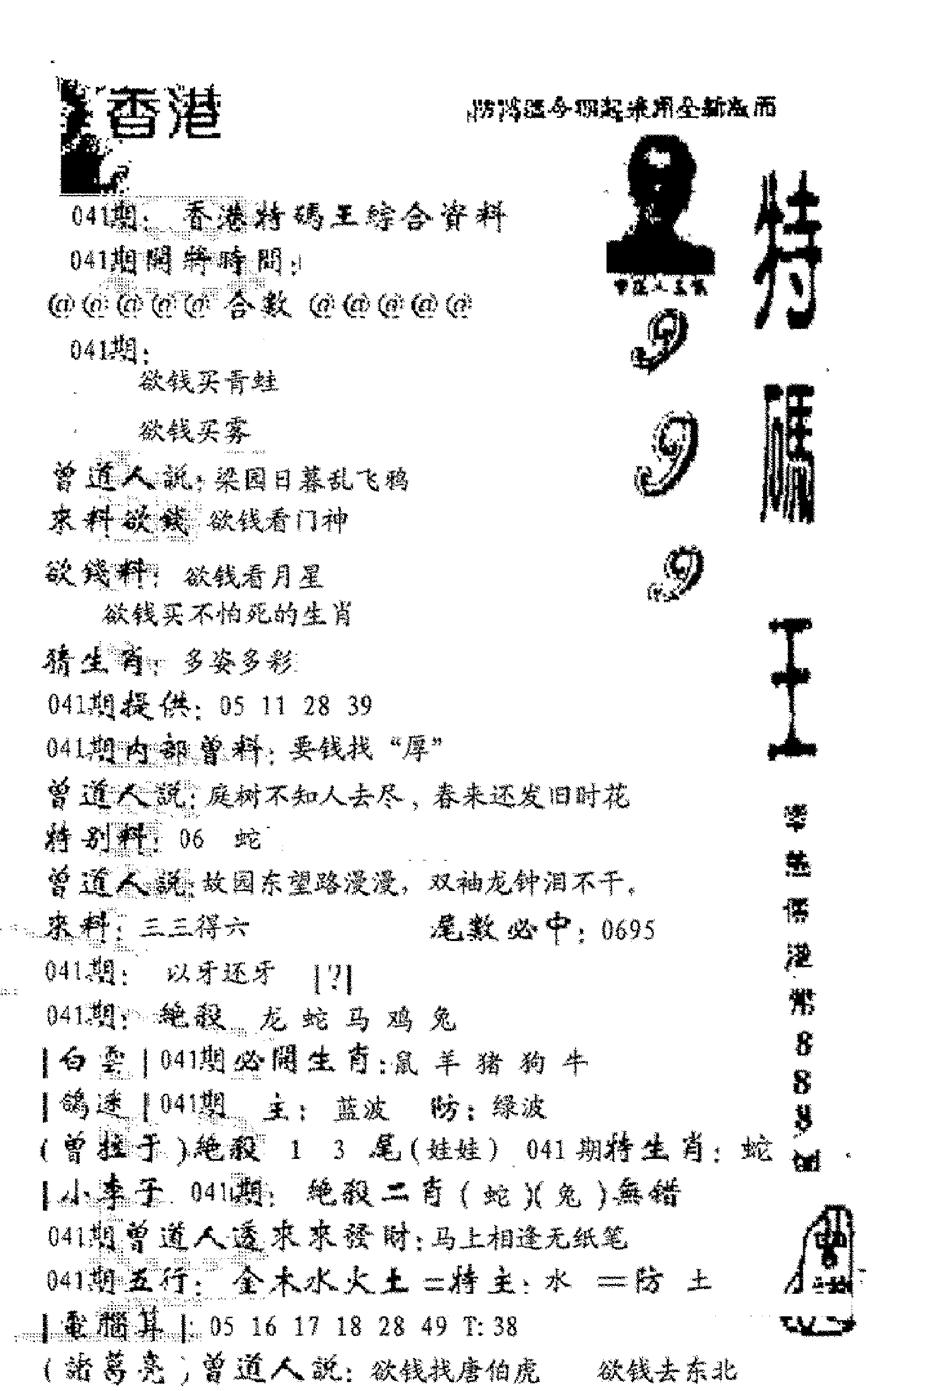 香港
041期: 香港特碼王綜合資料
041期開將時間:
@@@@@ 合數 @@@@@
041期:
欲钱买青蛙
欲钱买雾
曾道人説: 梁园日暮乱飞鸦
來料欲錢 欲钱看门神
欲錢料: 欲钱看月星
欲钱买不怕死的生肖
猜生肖: 多姿多彩
041期提供: 05 11 28 39
041期内部曾料: 要钱找“厚”
曾道人説: 庭树不知人去尽, 春来还发旧时花
特别料: 06 蛇
曾道人説: 故园东望路漫漫, 双袖龙钟泪不干。
來料: 三三得六 尾數必中: 0695
041期: 以牙还牙 |?|
041期: 絶殺 龙 蛇 马 鸡 兔
|白雲| 041期必開生肖:鼠 羊 猪 狗 牛
|鴿迷| 041期 主: 蓝波 防: 绿波
(曾拉于)絶殺 1 3 尾(娃娃) 041期特生肖: 蛇
|小李子 041期: 絶殺二肖(蛇)(兔)無錯
041期曾道人透來來發財:马上相逢无纸笔
041期五行: 金木水火土=特主:水 =防 土
|電腦算|: 05 16 17 18 28 49 T:38
(諸葛亮)曾道人説: 欲钱找唐伯虎 欲钱去东北
特碼王
9
9
9
港幣888